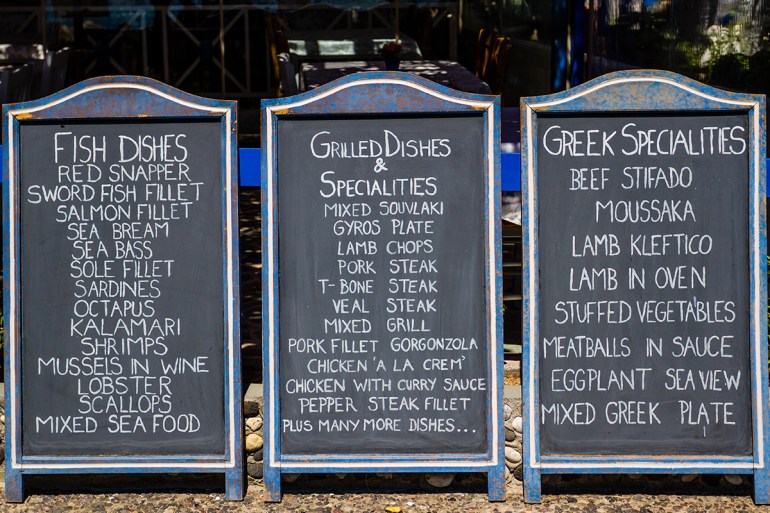 FISH DISHES
RED SNAPPER
SWORD FISH FILLET
SALMON FILLET
SEA BREAM
SEA BASS
SOLE FILLET
SARDINES
OCTAPUS
KALAMARI
SHRIMPS
MUSSELS IN WINE
LOBSTER
SCALLOPS
MIXED SEA FOOD
GRILLED DISHES
&
SPECIALITIES
MIXED SOUVLAKI
GYROS PLATE
LAMB CHOPS
PORK STEAK
T-BONE STEAK
VEAL STEAK
MIXED GRILL
PORK FILLET GORGONZOLA
CHICKEN 'A LA CREM'
CHICKEN WITH CURRY SAUCE
PEPPER STEAK FILLET
PLUS MANY MORE DISHES...
GREEK SPECIALITIES
BEEF STIFADO
MOUSSAKA
LAMB KLEFTICO
LAMB IN OVEN
STUFFED VEGETABLES
MEATBALLS IN SAUCE
EGGPLANT SEA VIEW
MIXED GREEK PLATE